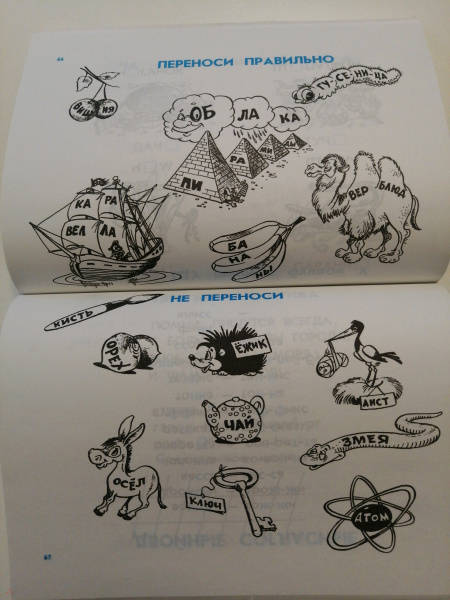 ПЕРЕНОСИ ПРАВИЛЬНО
ВИШ НЯ
ГУ-СЕ-НИ-ЦА
ОБ ЛА КА
ПИ РА МИ ДЫ
КА РА
ВЕЛ ЛА
БА
НА
НЫ
ВЕР БЛЮД
НЕ ПЕРЕНОСИ
КИСТЬ
ОРЕХ
ЁЖИК
АИСТ
ЧАЙ
ЗМЕЯ
ОСЁЛ
КЛЮЧ
АТОМ